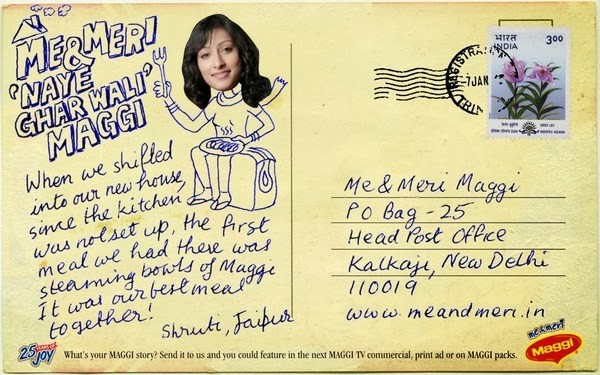 ME & MERI
'NAYE
GHAR WALI'
MAGGI
When we shifted
into our new house,
since the kitchen
was not set up, the first
meal we had there was
steaming bowls of Maggi
It was our best meal
together!
Shruti, Jaipur
भारत
INDIA
3.00
7 JAN
Me & Meri Maggi
PO Bag - 25
Head Post Office
Kalkaji, New Delhi
110019
www.meandmeri.in
25 YEARS OF
JOY
What's your MAGGI story? Send it to us and you could feature in the next MAGGI TV commercial, print ad or on MAGGI packs.
me & meri
Maggi